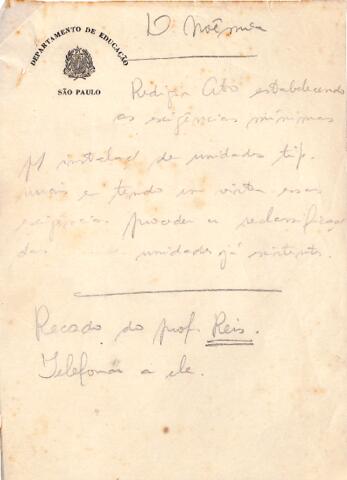 D Noêmia
DEPARTAMENTO DE EDUCAÇÃO
SÃO PAULO
Redigir Ato estabelecendo
as exigências mínimas
p/ instalaç de unidades tip.
mais e tendo em vista essas
exigências proceder a reclassificaç
das unidades já existentes.
Recado do prof. Reis.
Telefonar a ele.